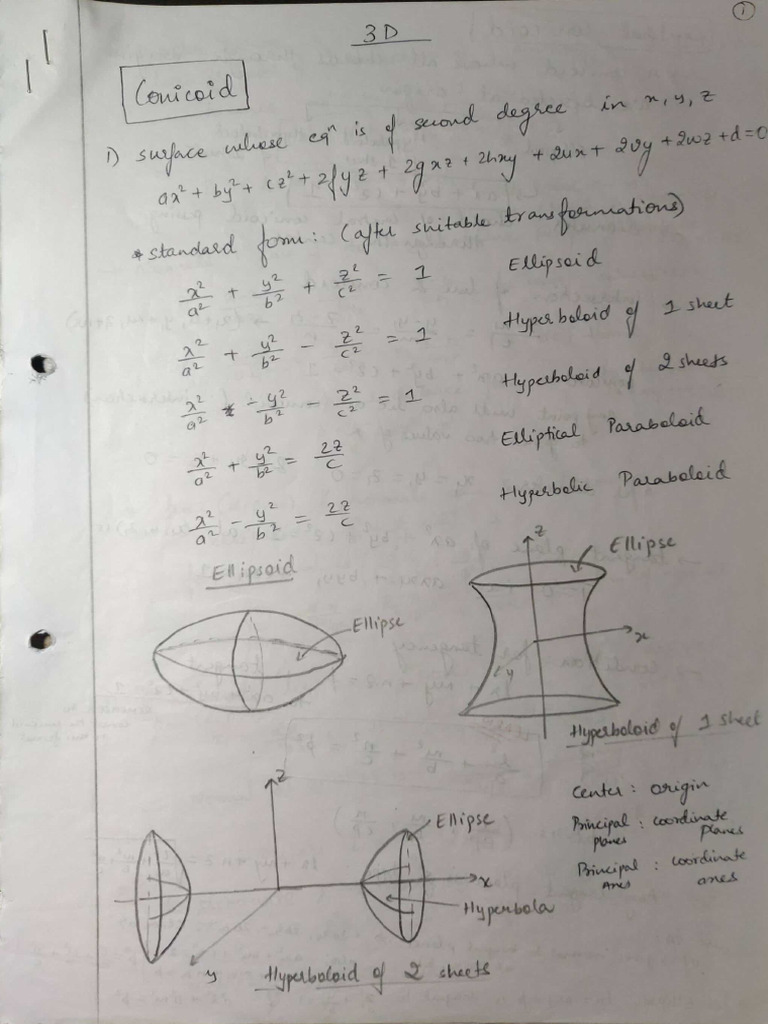 ①
3D
Conicoid
1) surface whose eqⁿ is of second degree in x, y, z
ax² + by² + cz² + 2fyz + 2gxz + 2hxy + 2ux + 2vy + 2wz + d = 0
* standard form: (after suitable transformations)
x²/a² + y²/b² + z²/c² = 1 Ellipsoid
x²/a² + y²/b² - z²/c² = 1 Hyperboloid of 1 sheet
x²/a² - y²/b² - z²/c² = 1 Hyperboloid of 2 sheets
x²/a² + y²/b² = 2z/c Elliptical Paraboloid
x²/a² - y²/b² = 2z/c Hyperbolic Paraboloid
Ellipsoid
Ellipse
z
Ellipse
x
y
Hyperboloid of 1 sheet
Center : origin
Principal planes : coordinate planes
Principal axes : coordinate axes
z
Ellipse
x
Hyperbola
y
Hyperboloid of 2 sheets